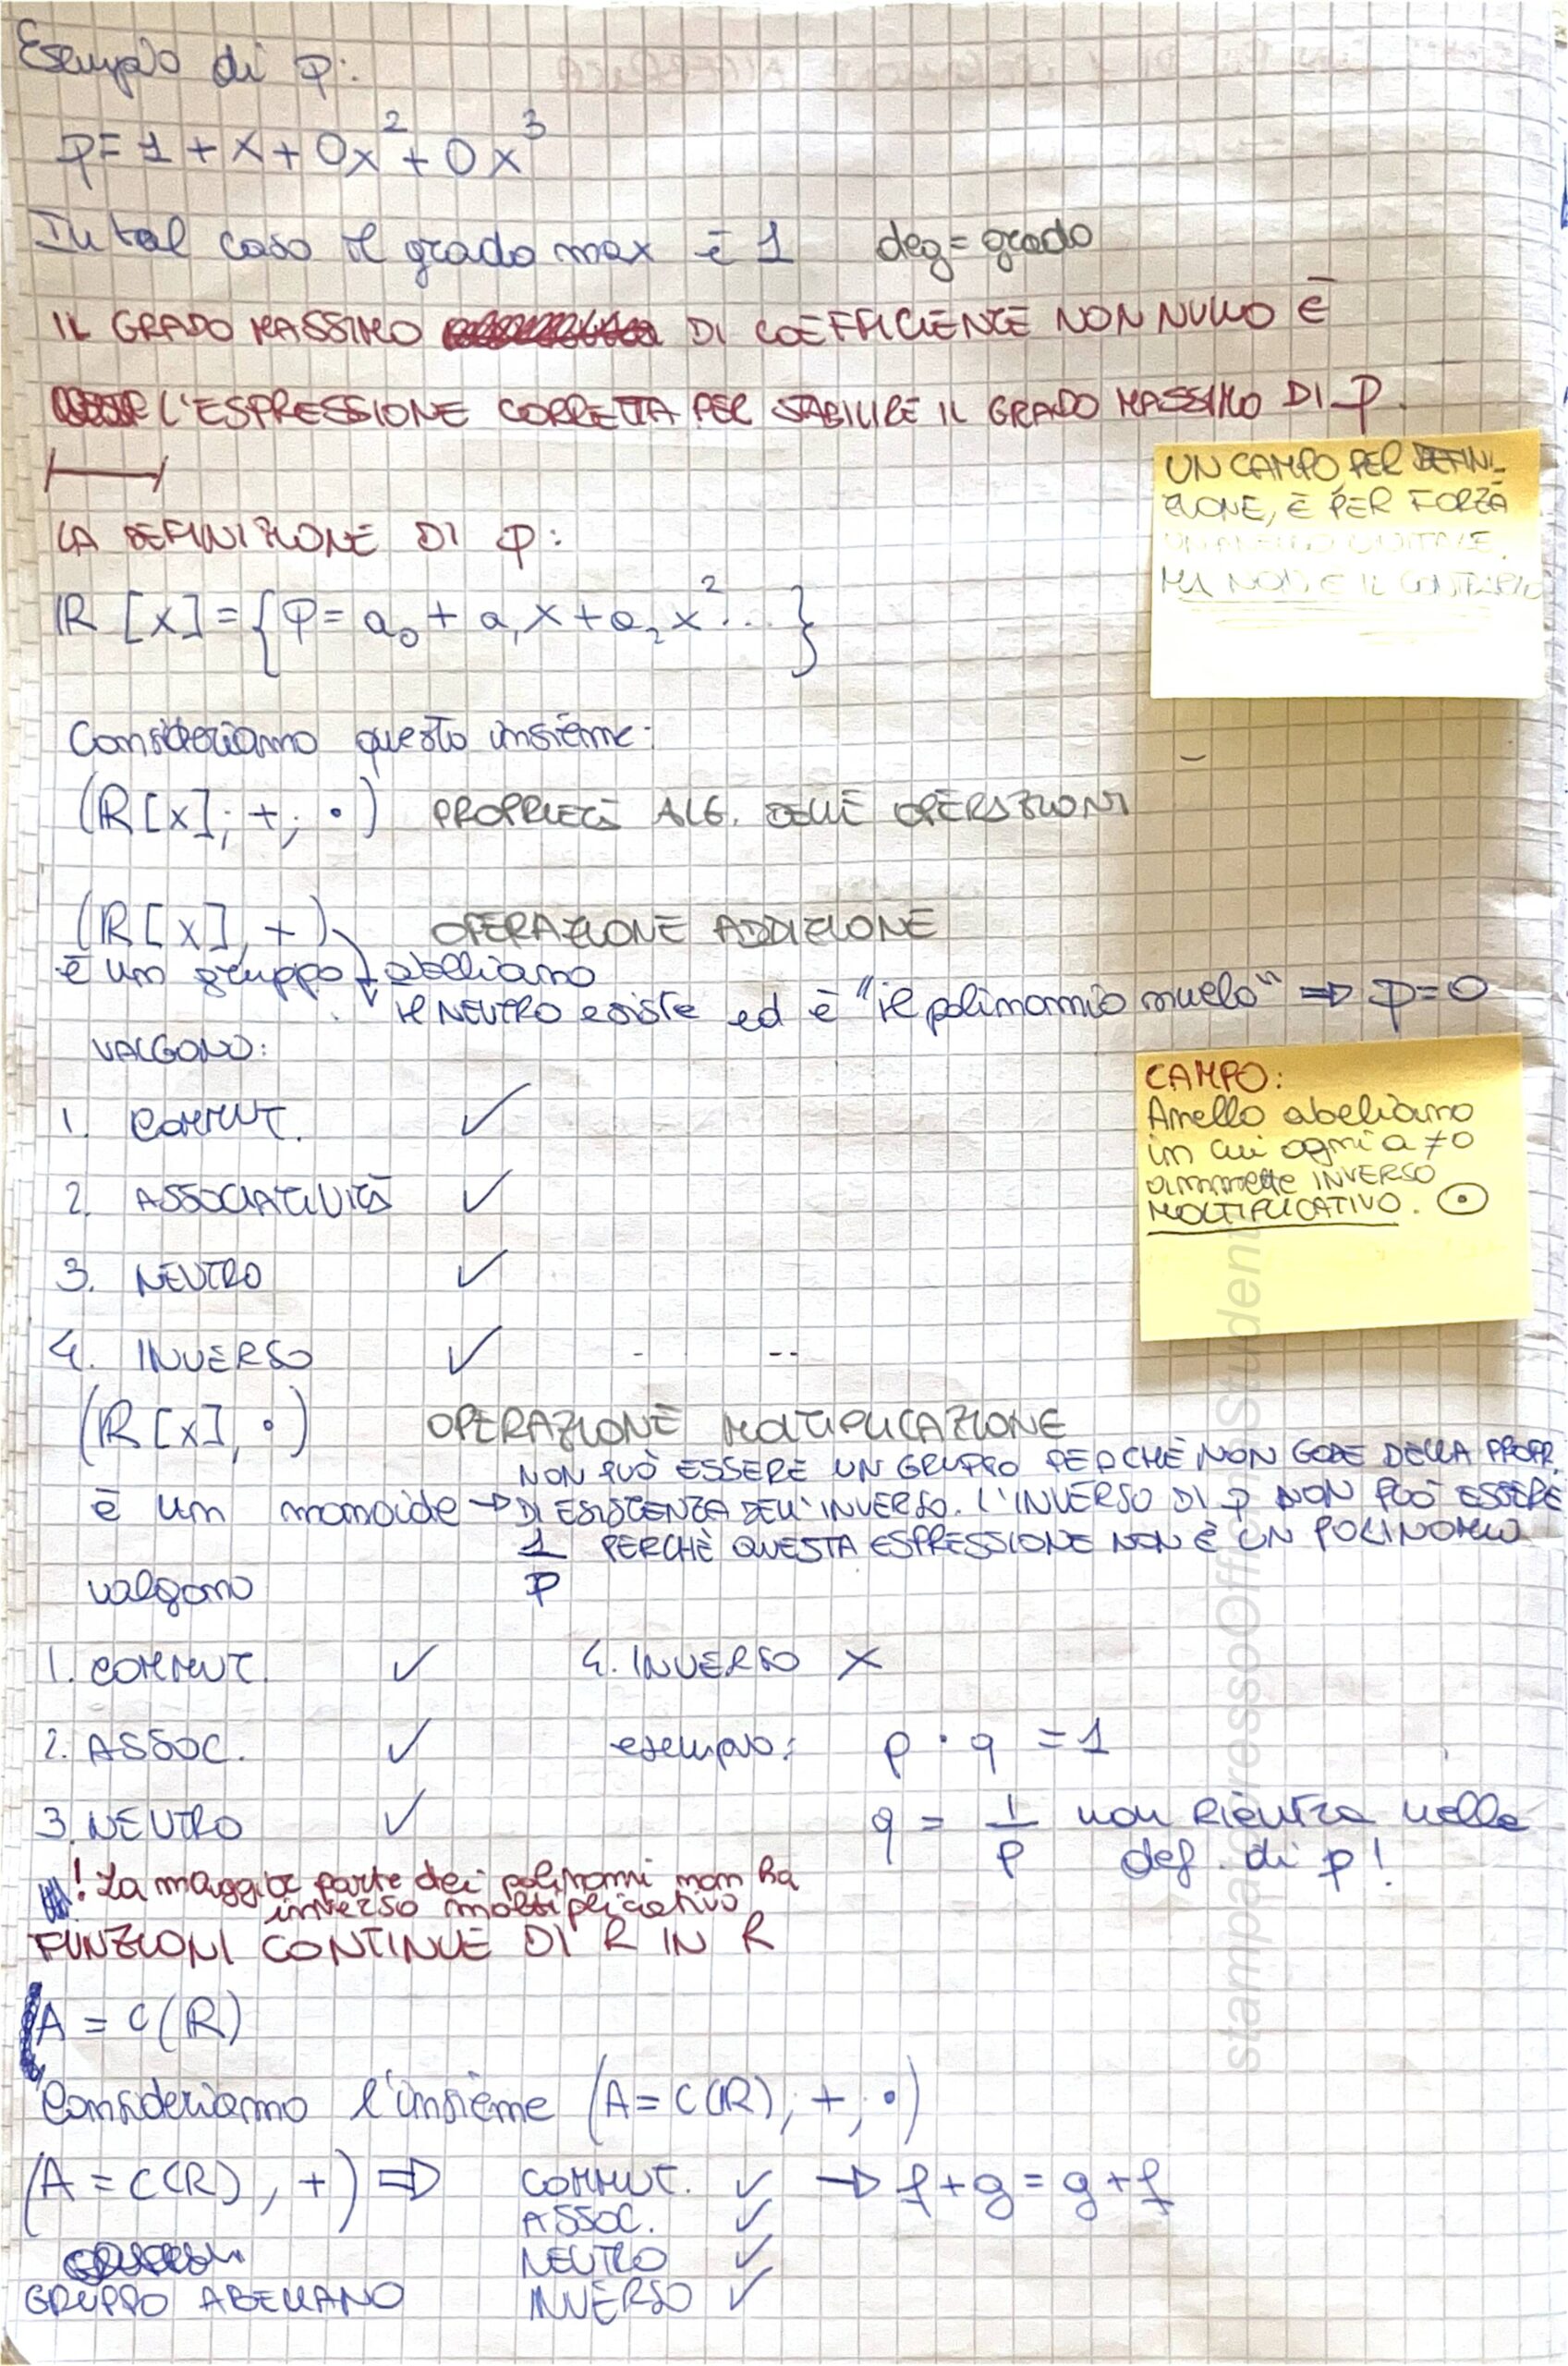 Esempio di p:
p = 1 + x + 0x² + 0x³
In tal caso il grado max è 1   deg = grado
IL GRADO MASSIMO DI COEFFICIENTE NON NULLO È
L'ESPRESSIONE CORRETTA PER STABILIRE IL GRADO MASSIMO DI P.
LA DEFINIZIONE DI p:
ℝ[x] = {p = a₀ + a₁x + a₂x² ... }
UN CAMPO, PER DEFINI-
ZIONE, È PER FORZA
UN ANELLO UNITALE.
MA NON È IL CONTRARIO
Consideriamo questo insieme:
(ℝ[x]; +; ·) PROPRIETÀ ALG. DELLE OPERAZIONI
(ℝ[x], +) OPERAZIONE ADDIZIONE
è un gruppo abeliano
il NEUTRO esiste ed è "il polinomio nullo" ⇒ p=0
VALGONO:
1. COMMUT. ✓
2. ASSOCIATIVITÀ ✓
3. NEUTRO ✓
4. INVERSO ✓
CAMPO:
Anello abeliano
in cui ogni a≠0
ammette INVERSO
MOLTIPLICATIVO. ⊙
(ℝ[x], ·) OPERAZIONE MOLTIPLICAZIONE
NON PUÒ ESSERE UN GRUPPO PERCHÈ NON GODE DELLA PROPR.
è un monoide → DI ESISTENZA DELL'INVERSO. L'INVERSO DI p NON PUÒ ESSERE
1/p PERCHÈ QUESTA ESPRESSIONE NON È UN POLINOMIO
valgono
1. COMMUT. ✓   4. INVERSO ×
2. ASSOC. ✓   esempio: p · q = 1
3. NEUTRO ✓   q = 1/p non rientra nella
def. di p!
! La maggior parte dei polinomi non ha
inverso moltiplicativo
FUNZIONI CONTINUE DI R IN R
A = C(ℝ)
Consideriamo l'insieme (A = C(ℝ); +; ·)
(A = C(ℝ), +) ⇒ COMMUT. ✓ → f+g = g+f
ASSOC. ✓
NEUTRO ✓
GRUPPO ABELIANO   INVERSO ✓
stampatopressoOfficinaStudenti